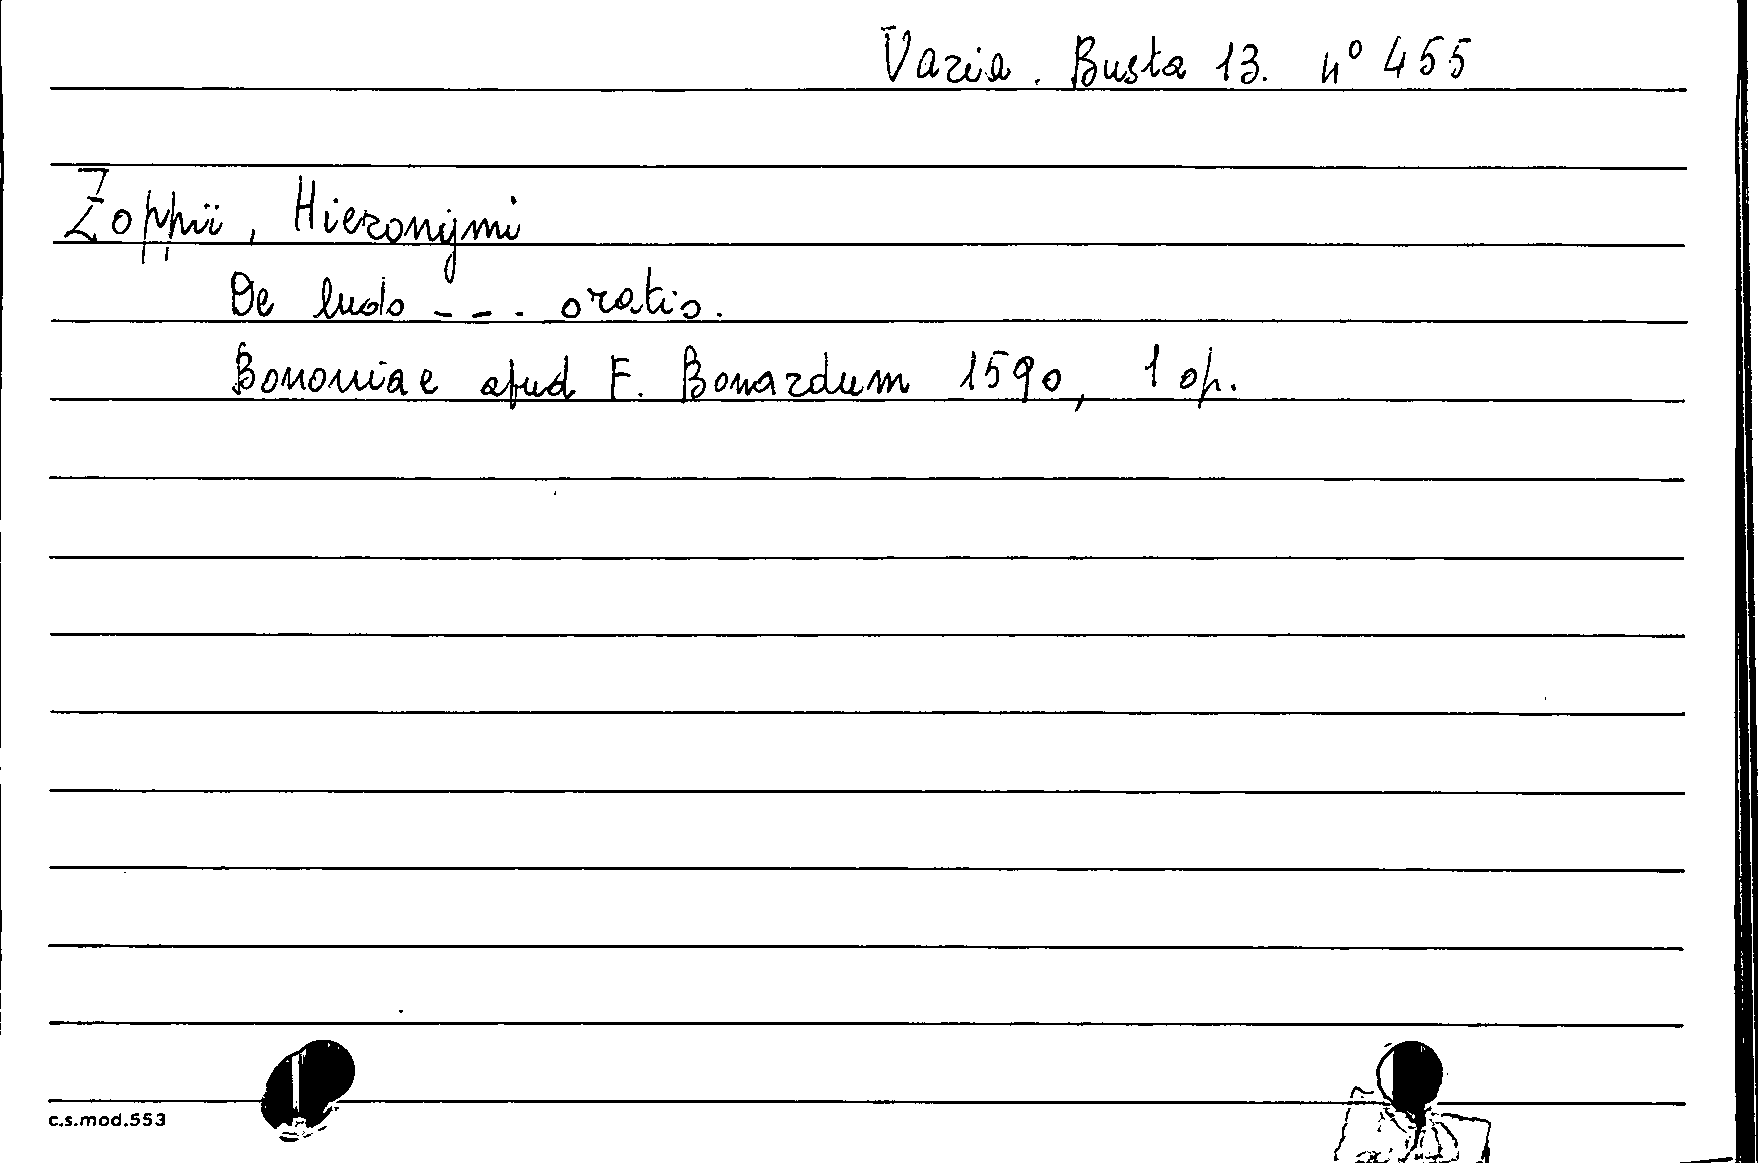 Varia. Busta 13. n° 455
Zoppii, Hieronymi
De ludo --- oratio.
Bononiae apud F. Bonardum 1590, 1 op.
c.s.mod.553